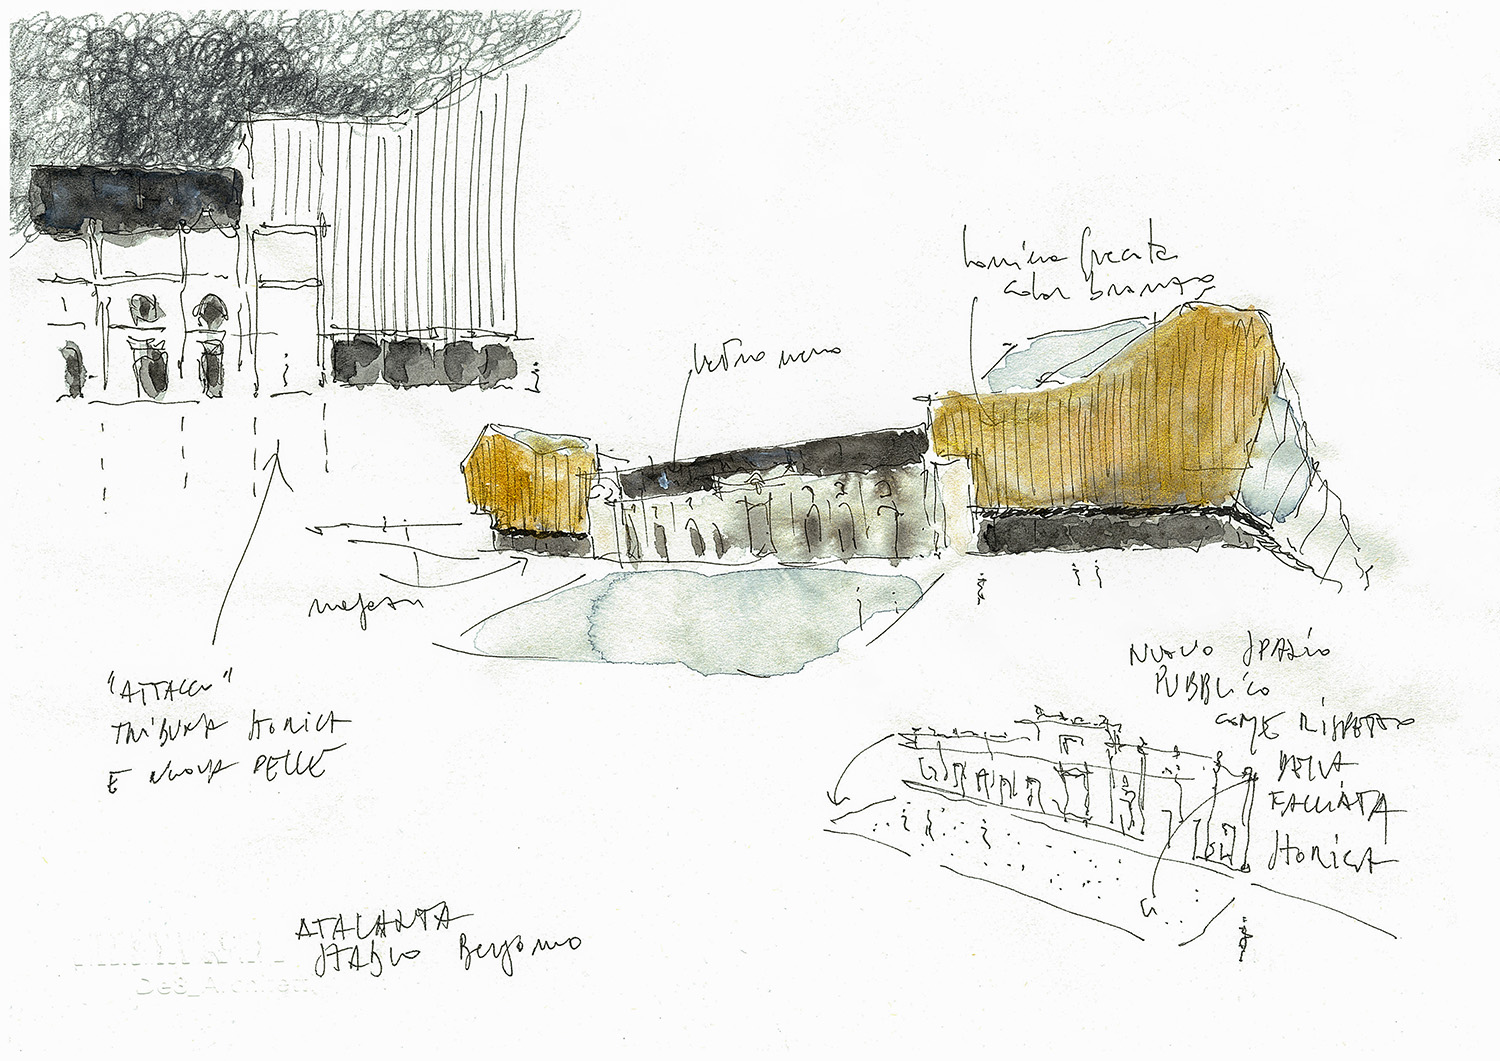 lamiera grecata
color bronzo
vetro nero
"ATTACCO"
TRIBUNA STORICA
E NUOVA PELLE
NUOVO SPAZIO
PUBBLICO
COME RISPETTO
DELLA
FACCIATA
STORICA
ATALANTA
STADIO Bergamo
De8_Architetti